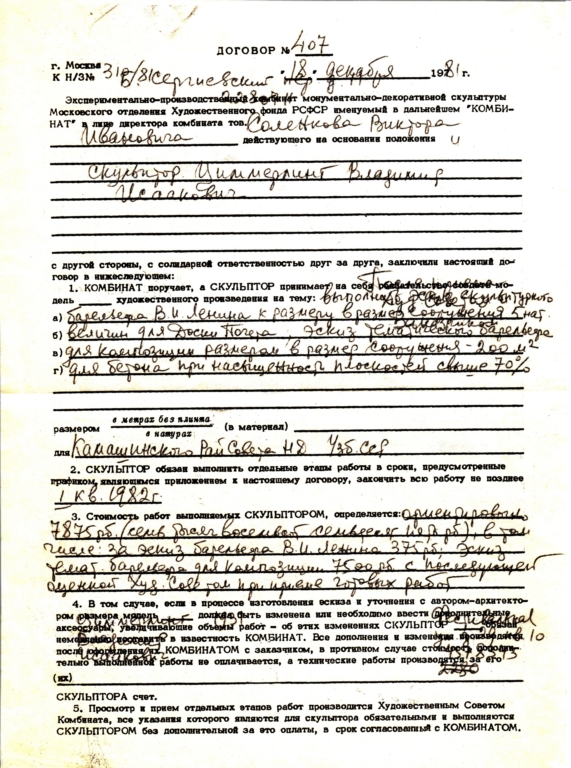 ДОГОВОР № 407
г. Москва
К Н/ЗN 312/81 Сергиевский "18" декабря 1981 г.
Экспериментально-производственный комбинат монументально-декоративной скульптуры
Московского отделения Художественного фонда РСФСР именуемый в дальнейшем "КОМБИ-
НАТ" в лице директора комбината тов. Соленкова Виктора
Ивановича действующего на основании положения и
скульптор Циммерлинг Владимир
Исаакович
с другой стороны, с солидарной ответственностью друг за друга, заключили настоящий до-
говор в нижеследующем:
1. КОМБИНАТ поручает, а СКУЛЬПТОР принимает на себя обязательство создать мо-
дель художественного произведения на тему: выполнить эскиз скульптурного
а) барельефа В.И. Ленина к размеру в размер сооружения 5 нат.
б) величин для Доски Почета, эскиз тематического барельефа
в) для композиции размером в размер сооружения - 200 м²
г) для бетона при насыщенности плоскостей свыше 70%
размером в метрах без плинта (в материал)
в натурах
для Камашинского РайСовета НД Узб.ССР
2. СКУЛЬПТОР обязан выполнить отдельные этапы работы в сроки, предусмотренные
графиком, являющимся приложением к настоящему договору, закончить всю работу не позднее
I кв. 1982 г.
3. Стоимость работ выполняемых СКУЛЬПТОРОМ, определяется: ориентировочно
7875 рб (семь тысяч восемьсот семьдесят пять рб); в том
числе: за эскиз барельефа В.И. Ленина 375 рб; эскиз
темат. барельефа для композиции 7500 рб с последующей
оценкой Худ. Советом при приеме готовых работ
4. В том случае, если в процессе изготовления эскиза и уточнения с автором-архитекто-
ром размера модель должна быть изменена или необходимо ввести дополнительные
аксессуары, увеличивающие объемы работ – об этих изменениях СКУЛЬПТОР обязан
немедленно поставить в известность КОМБИНАТ. Все дополнения и изменения производятся
после оформления их КОМБИНАТОМ с заказчиком, в противном случае стоимость дополни-
тельно выполненной работы не оплачивается, а технические работы производятся за его
(их)
СКУЛЬПТОРА счет.
5. Просмотр и прием отдельных этапов работ производится Художественным Советом
Комбината, все указания которого являются для скульптора обязательными и выполняются
СКУЛЬПТОРОМ без дополнительной за это оплаты, в срок согласованный с КОМБИНАТОМ.